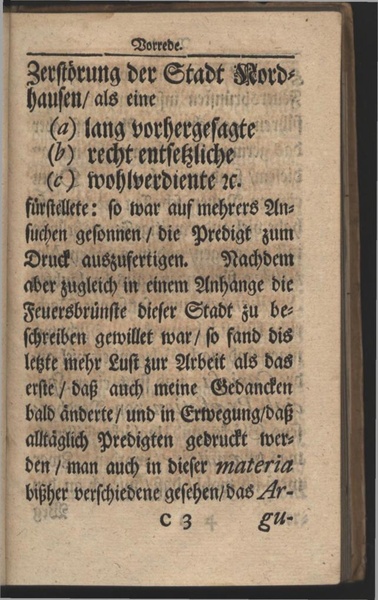 Vorrede.
Zerstörung der Stadt Nord-
hausen/ als eine
(a) lang vorhergesagte
(b) recht entsetzliche
(c) wohlverdiente ꝛc.
fürstellete: so war auf mehrers An-
suchen gesonnen / die Predigt zum
Druck auszufertigen. Nachdem
aber zugleich in einem Anhänge die
Feuersbrünste dieser Stadt zu be-
schreiben gewillet war/ so fand dis
letzte mehr Lust zur Arbeit als das
erste/ daß auch meine Gedancken
bald änderte/ und in Erwegung/daß
alltäglich Predigten gedruckt wer-
den / man auch in dieser materia
bißher verschiedene gesehen/das Ar-
C 3 gu-